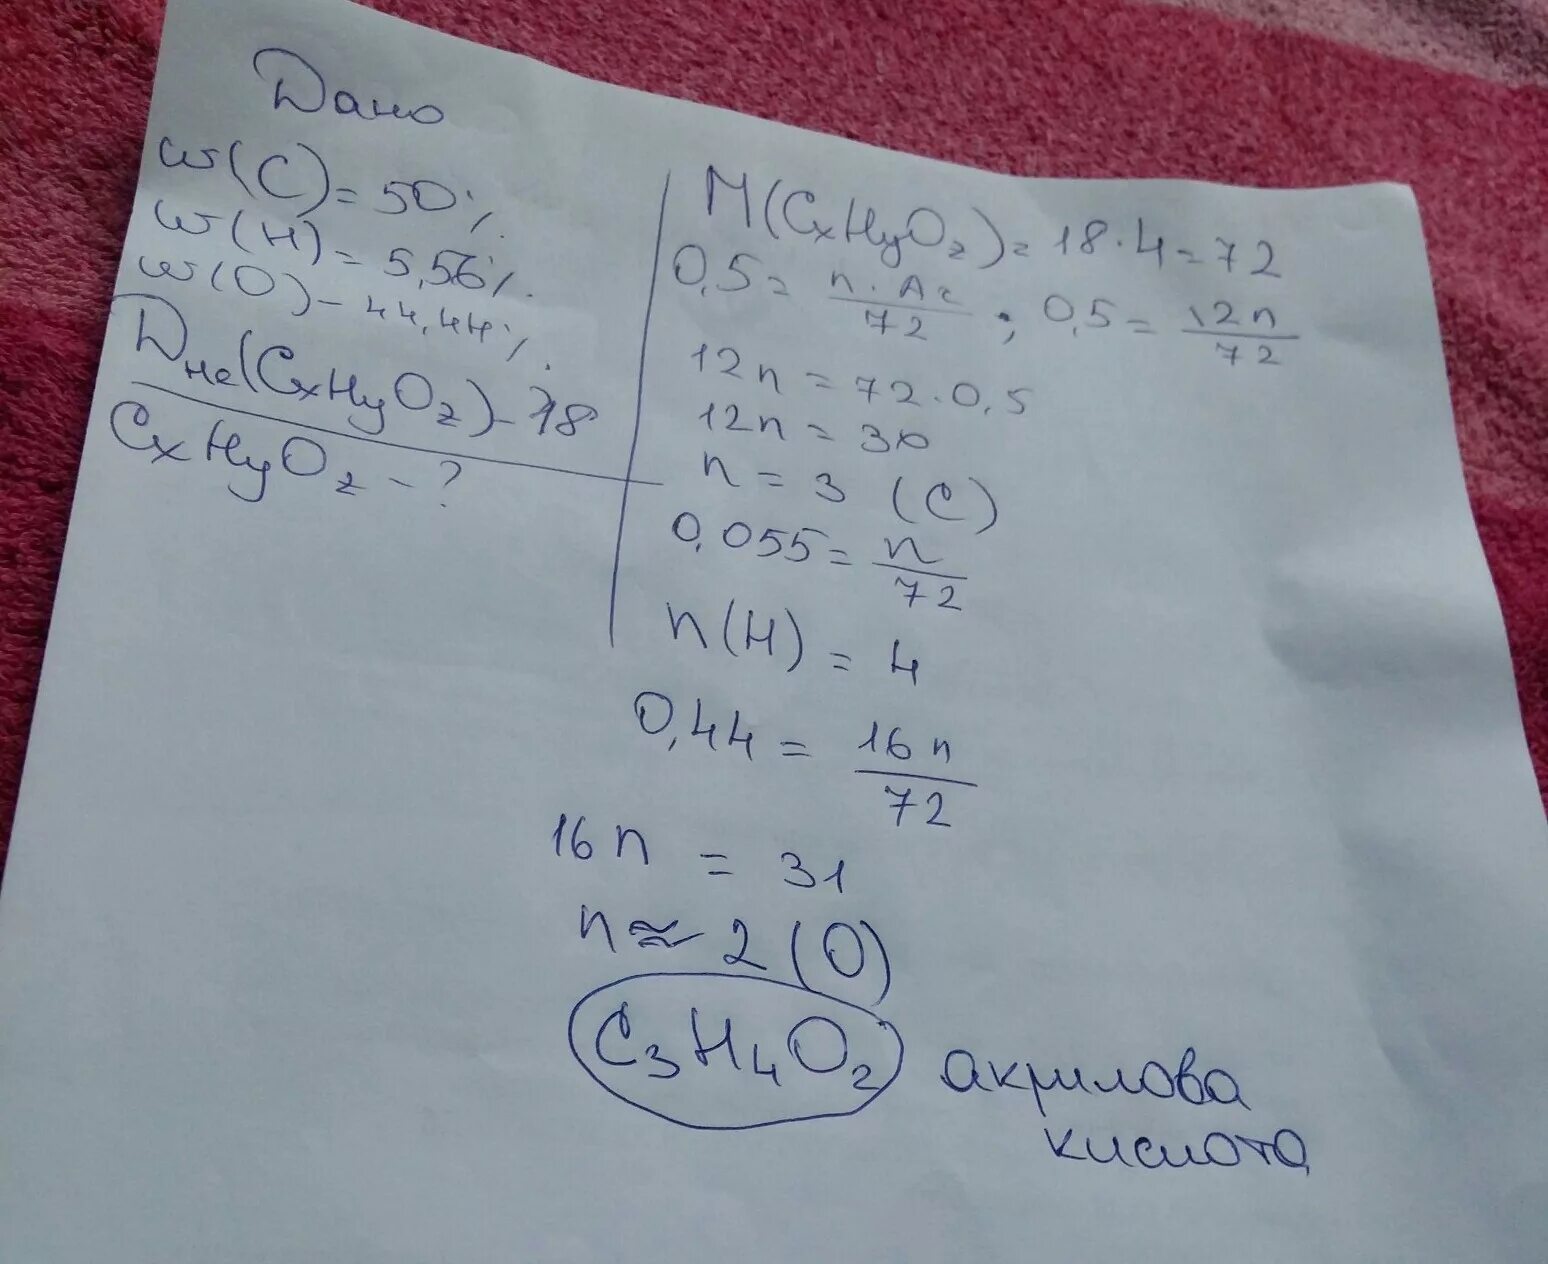 Дано
w(C) = 50%
w(H) = 5,56%.
w(O) - 44,44%.
Dне(CxHyOz) - 18
CxHyOz - ?
M(CxHyOz) = 18 · 4 = 72
0,5 = n · Ar / 72 ; 0,5 = 12n / 72
12n = 72 · 0,5
12n = 36
n = 3 (C)
0,055 = n / 72
n(H) = 4
0,44 = 16n / 72
16n = 31
n ≈ 2 (O)
C3H4O2 акрилова
кислота